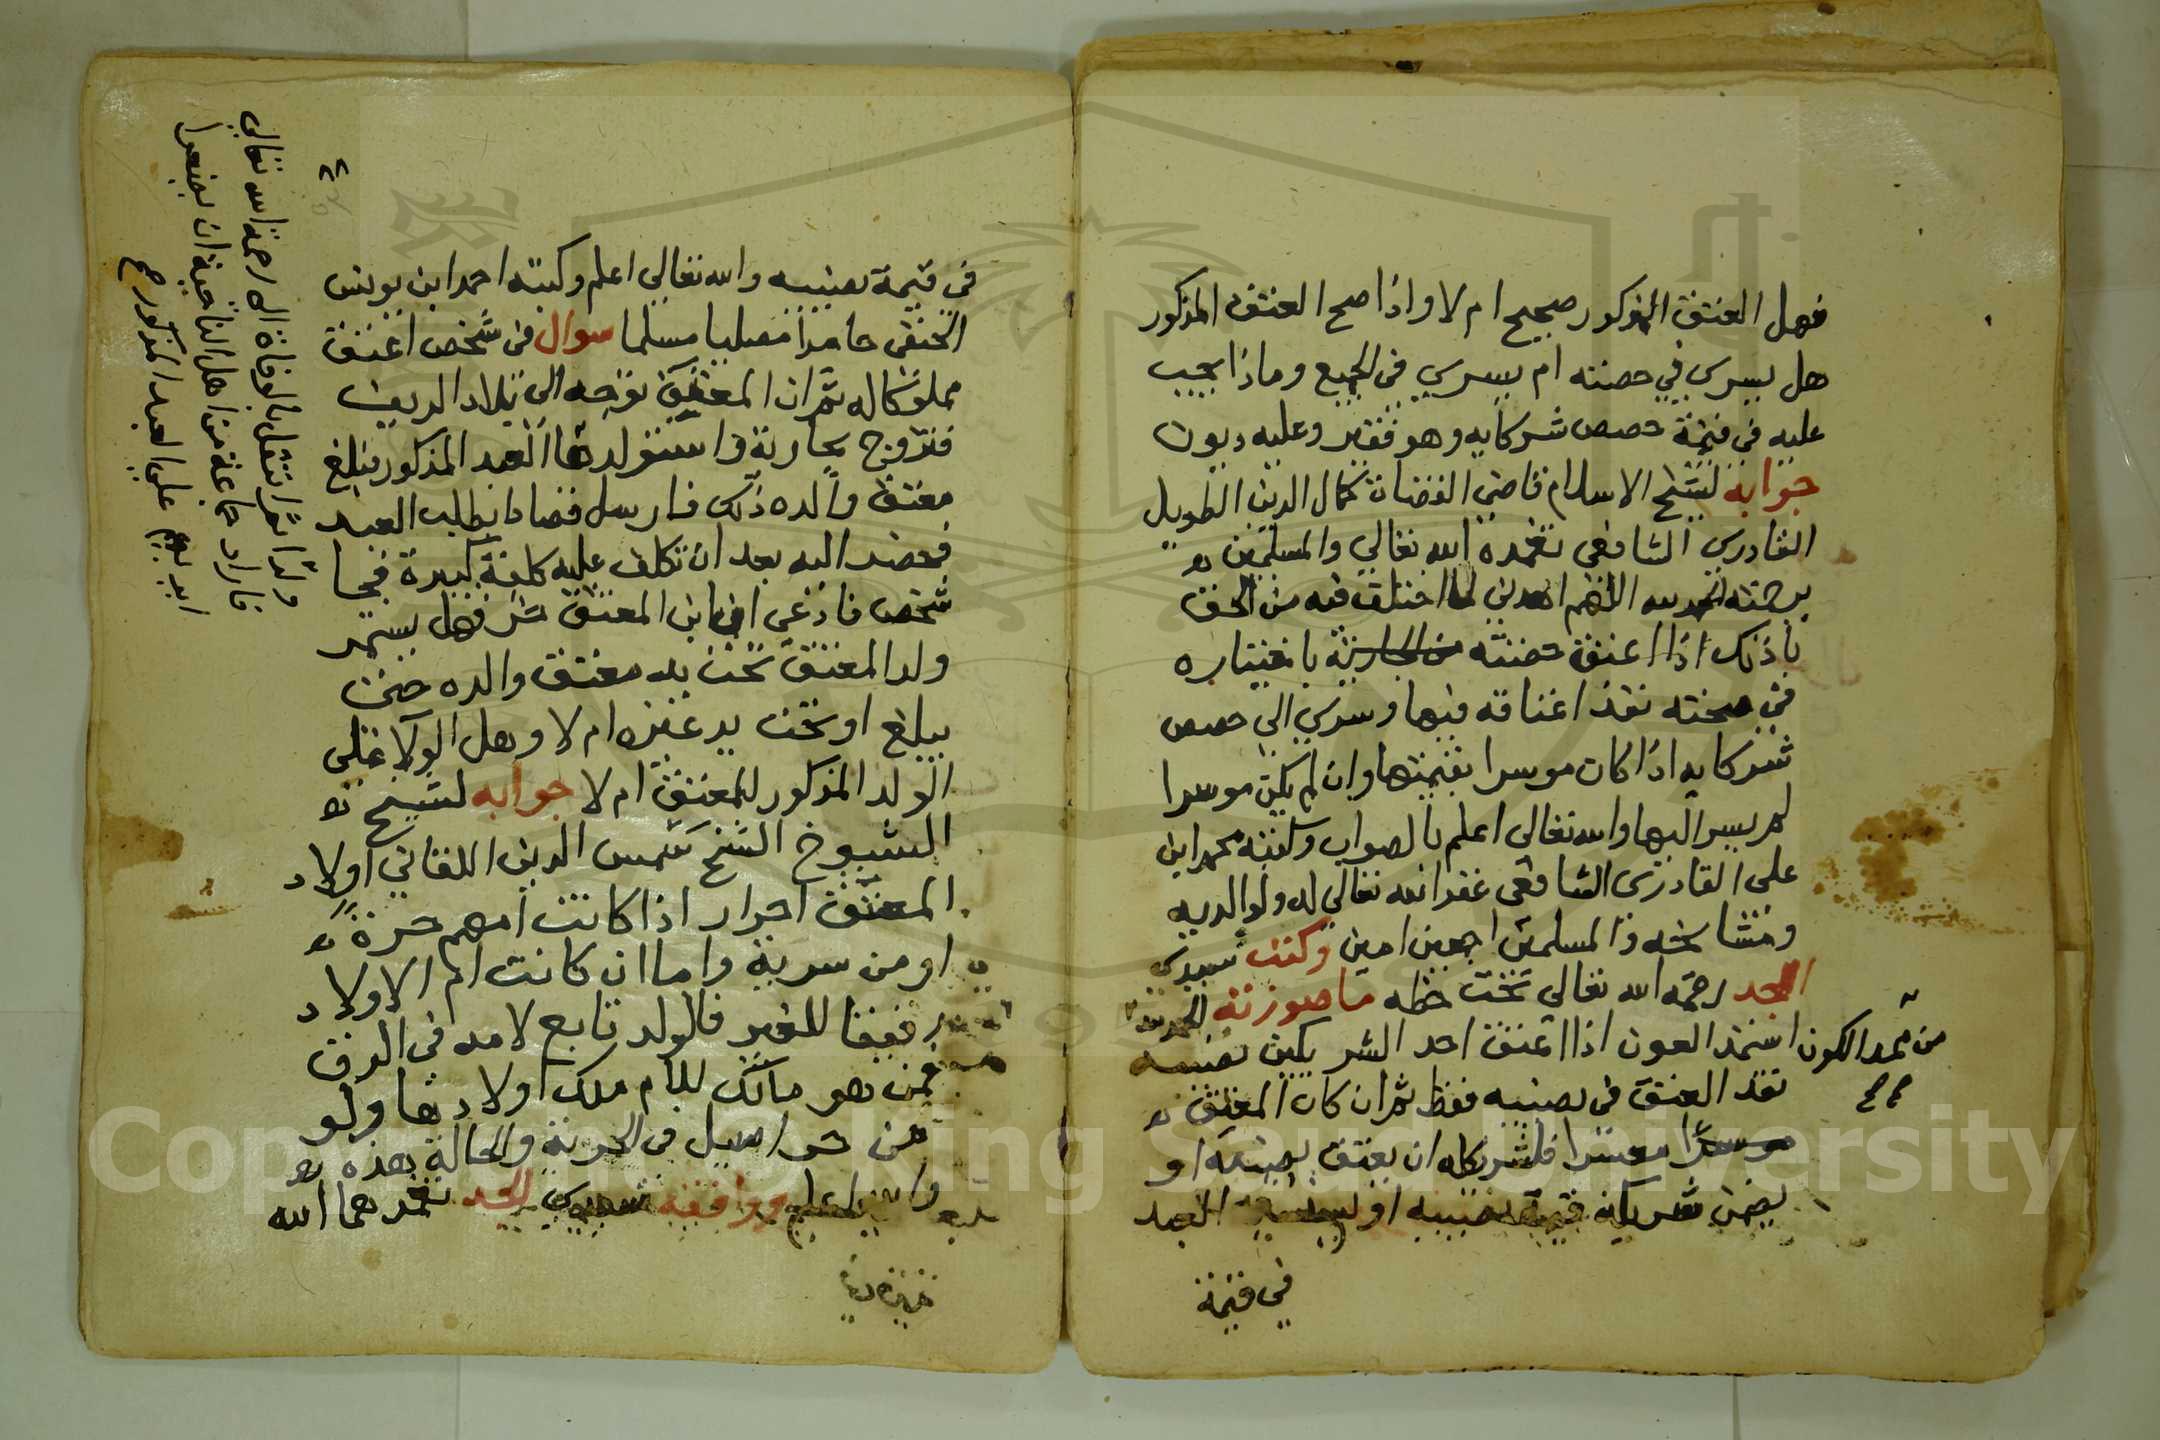 فهل العتق المذكور صحيح ام لا واذا صح العتق المذكور
هل يسري في حصته ام يسري في الجميع وماذا يجب
عليه في قيمة حصص شركايه وهو فقير وعليه ديون
جوابه لشيخ الاسلام قاضي القضاة كمال الدين الطويل
القادري الشافعي تغمده الله تعالى والمسلمين
برحمته الحمد لله اللهم اهدني لما اختلف فيه من الحق
باذنك اذا اعتق حصته من الجارية باختياره
في صحته نفذ اعتاقه فيها وسري الى حصص
شركايه اذا كان موسرا بقيمتها وان لم يكن موسرا
لم يسر اليها والله تعالى اعلم بالصواب وكتبه محمد ابن
على القادري الشافعي غفر الله تعالى له ولوالديه
ومشايخه والمسلمين اجمعين امين وكتب سيدي
الجد رحمه الله تعالى تحت خطه ما صورته الحمد لله
من ممد الكون استمد العون اذا اعتق احد الشريكين نصيبه
نفذ العتق في نصيبه فقط ثم ان كان المعتق
موسرا معسرا فلشريكه ان يعتق نصيبه او
يضمن شريكه قيمة نصيبه او العبد
في قيمة
٤
في قيمة نصيبه والله تعالى اعلم وكتبه احمد ابن يونس
الحنفي حامدا مصليا مسلما سوال في شخص اعتق
مملوكا له ثم ان المعتق توجه الى بلاد الريف
فتزوج بجارية واستولدها العبد المذكور فبلغ
معتق والده ذلك فارسل قصادا بطلب العبد
فحضر اليه بعد ان تكلف عليه كلفة كبيرة فجا
شخص فادعى ان ابن المعتق حر فهل يستمر
ولد المعتق تحت يد معتق والده حتى
يبلغ او تحت يد غيره ام لا وهل الولا على
الولد المذكور للمعتق ام لا جوابه لشيخ
الشيوخ الشيخ شمس الدين اللقاني اولاد
المعتق احرار اذا كانت امهم حرة
او من سرية واما ان كانت ام الاولاد
رقيقا للغير فالولد تابع لامه في الرق
فمن هو مالك للام ملك اولادها ولو
من حر اصيل في الحرية والحالة هذه
والله اعلم ووافقه سيدي الجد تغمدهما الله
ولدا ثم انتقل بالوفاة الى رحمة الله تعالى
فاراد جماعة من اهل الناحية ان يضعوا
ايديهم على العبد المذكور صح